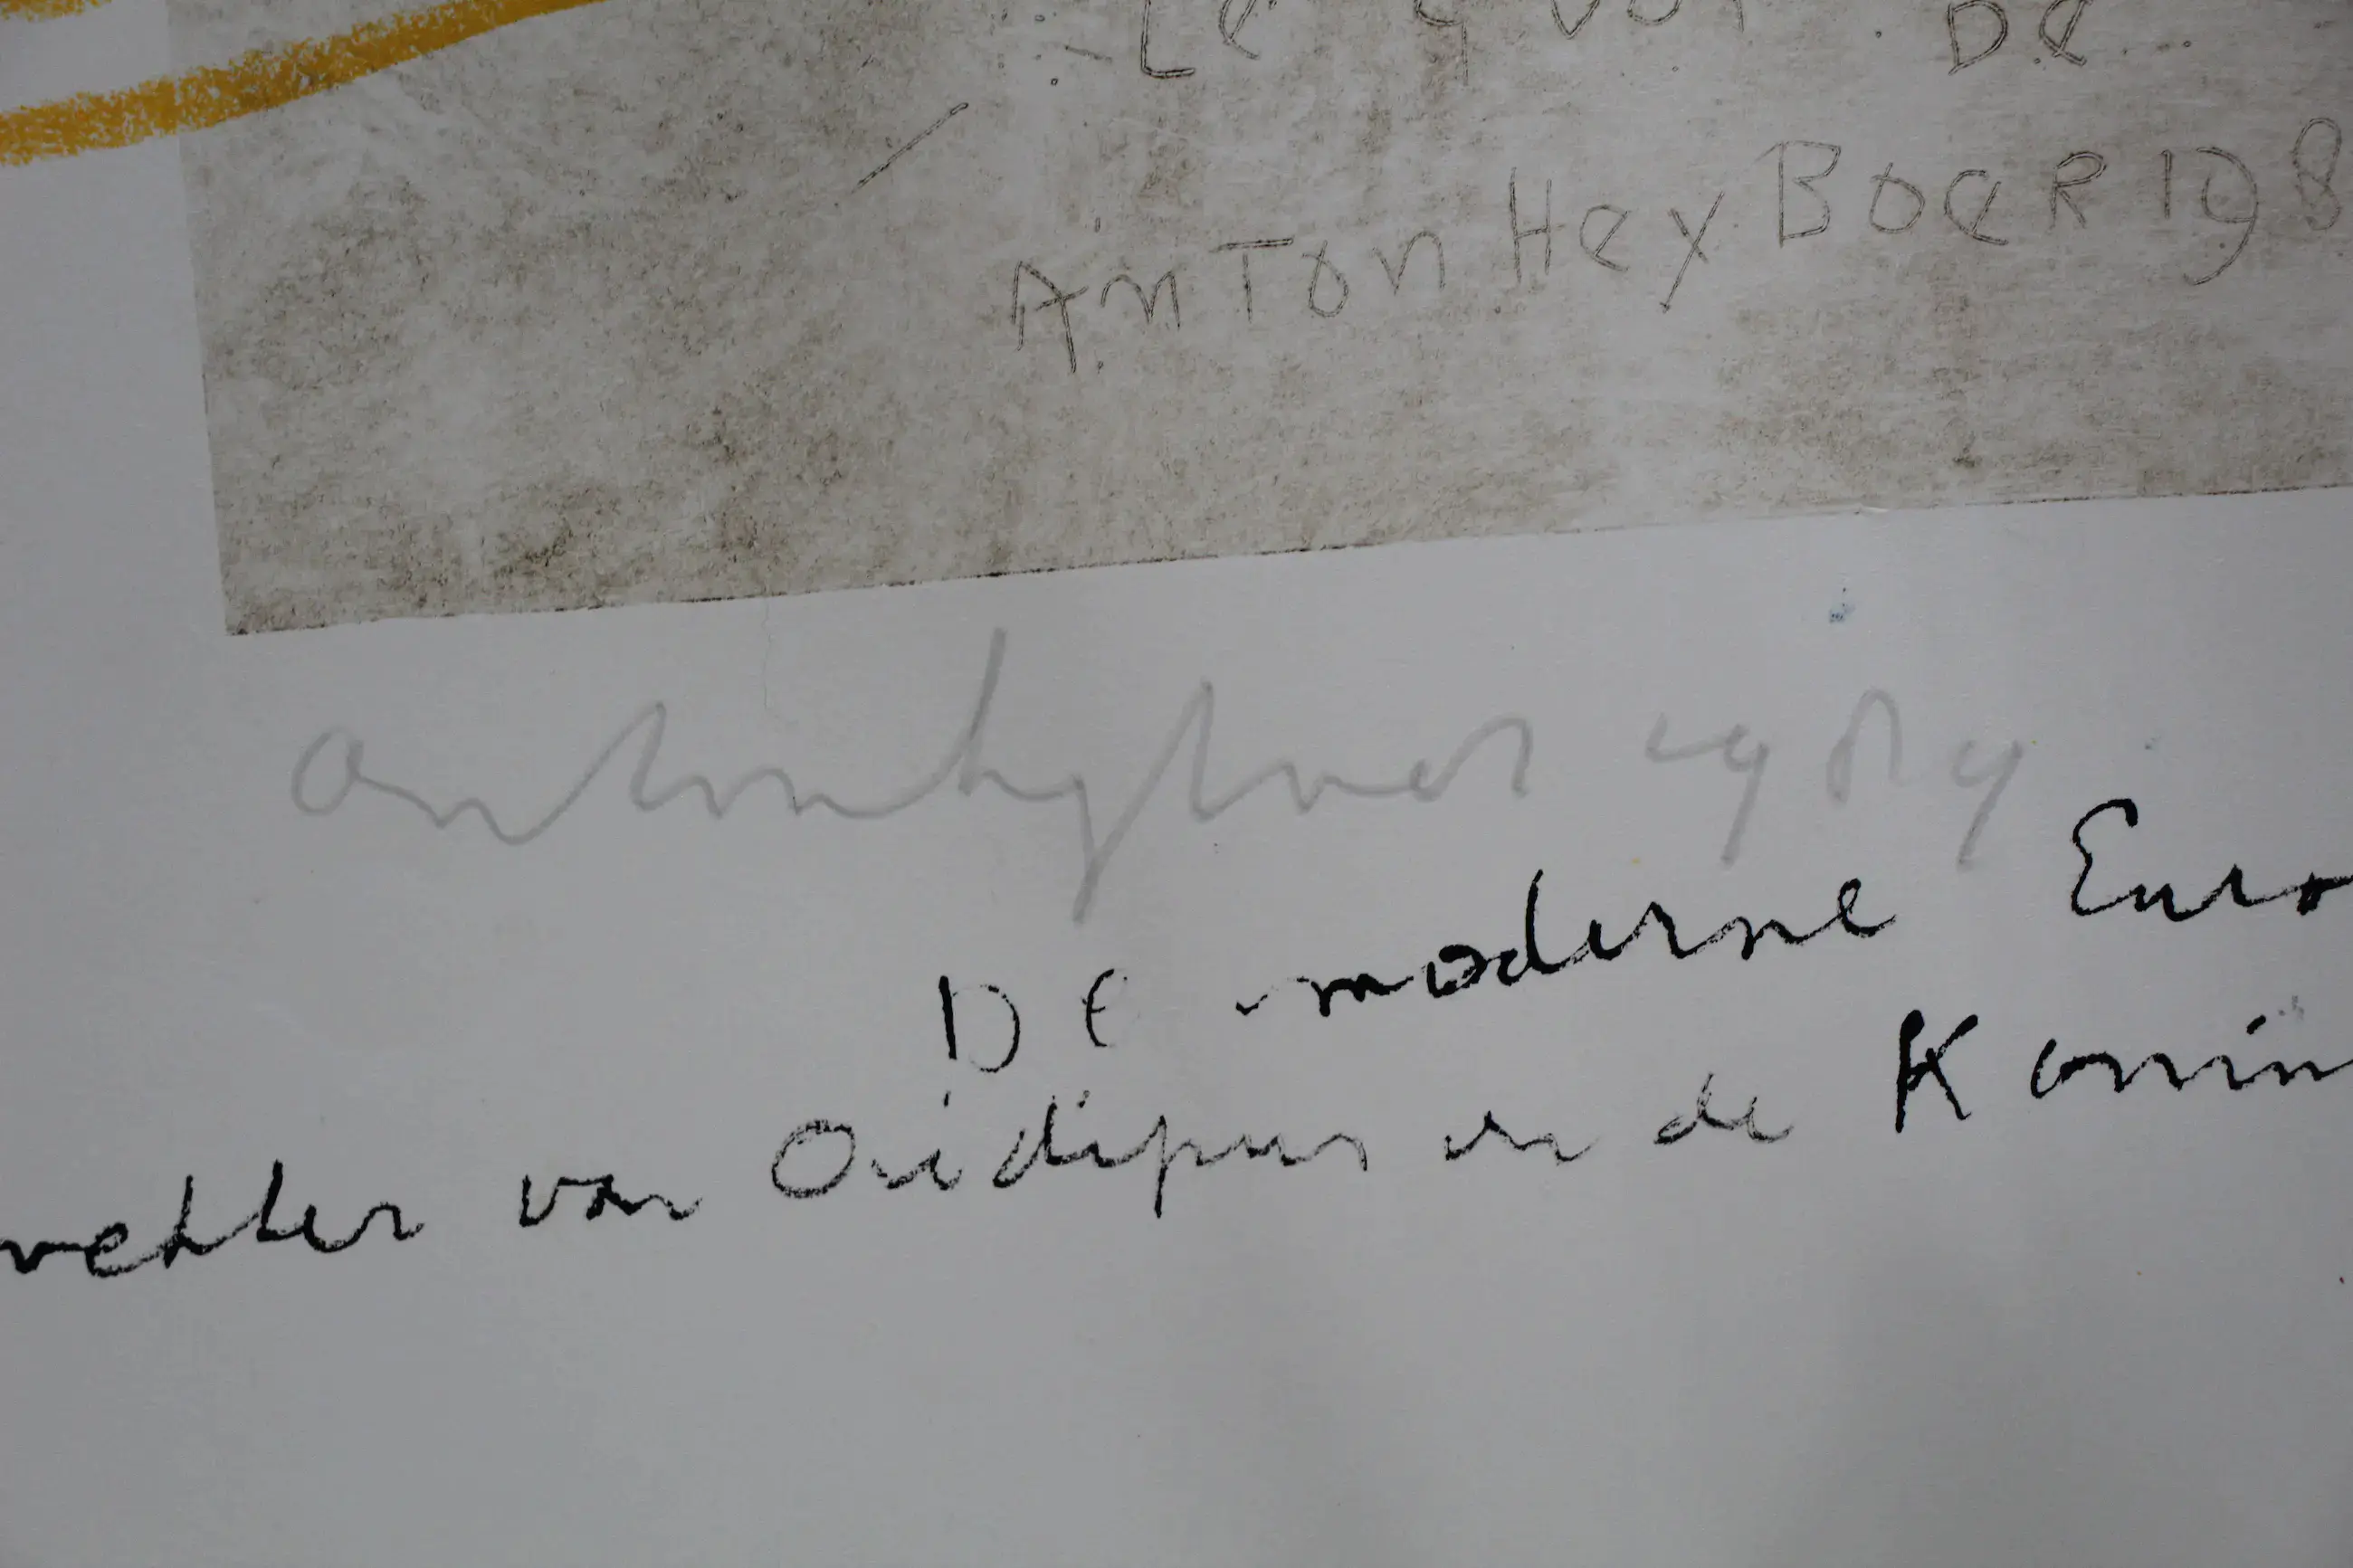 De
Anton Heyboer 198
anton heyboer 1989
De moderne Euro
van Oidipus en de Konin